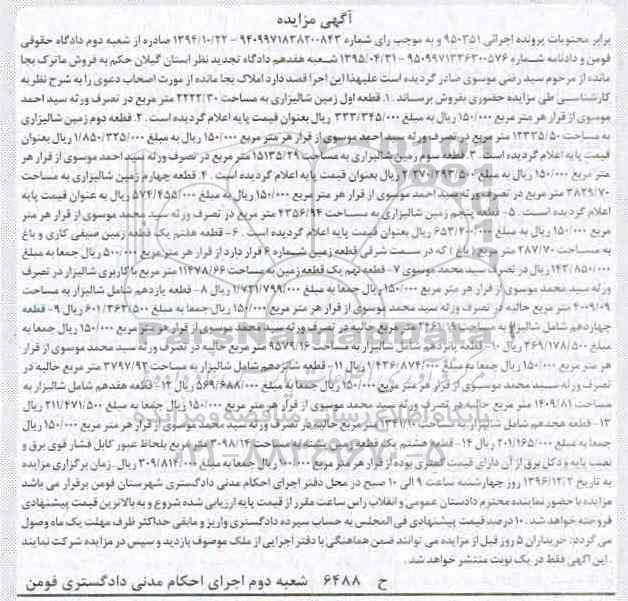 آگهی مزایده
برابر محتویات پرونده اجرائی ۹۵۰۳۵۱ و به موجب رای شماره ۹۴۰۹۹۷۱۸۳۸۳۰۰۸۴۳ - ۱۳۹۴/۱۰/۲۲ صادره از شعبه دوم دادگاه حقوقی
فومن و دادنامه شماره ۹۵۰۹۹۷۱۳۳۶۳۰۰۵۷۶ - ۱۳۹۵/۰۴/۳۱ شعبه هفدهم دادگاه تجدید نظر استان گیلان حکم به فروش ماترک بجا
مانده از مرحوم سید رضی موسوی صادر گردیده است علیهذا این اجرا قصد دارد املاک بجا مانده از مورث اصحاب دعوی را به شرح نظریه
کارشناسی طی مزایده حضوری بفروش برساند . ۱. قطعه اول زمین شالیزاری به مساحت ۲۲۲۲/۳۰ متر مربع در تصرف ورثه سید احمد
موسوی از قرار هر متر مربع ۱۵۰/۰۰۰ ریال به مبلغ ۳۳۳/۳۴۵/۰۰۰ ریال بعنوان قیمت پایه اعلام گردیده است . ۲. قطعه دوم زمین شالیزاری
به مساحت ۱۲۳۳۵/۵۰ متر مربع در تصرف ورثه سید احمد موسوی از قرار هر متر مربع ۱۵۰/۰۰۰ ریال به مبلغ ۱/۸۵۰/۳۲۵/۰۰۰ ریال بعنوان
قیمت پایه اعلام گردیده است . ۳. قطعه سوم زمین شالیزاری به مساحت ۱۵۱۳۵/۲۹ متر مربع در تصرف ورثه سید احمد موسوی از قرار هر
متر مربع ۱۵۰/۰۰۰ ریال به مبلغ ۲/۲۷۰/۲۹۳/۵۰۰ ریال بعنوان قیمت پایه اعلام گردیده است . ۴. قطعه چهارم زمین شالیزاری به مساحت
۳۸۲۹/۷۰ متر مربع در تصرف ورثه سید احمد موسوی از قرار هر متر مربع ۱۵۰/۰۰۰ ریال به مبلغ ۵۷۴/۴۵۵/۰۰۰ ریال به عنوان قیمت پایه
اعلام گردیده است . ۵- قطعه پنجم زمین شالیزاری به مساحت ۴۳۵۶/۹۴ متر مربع در تصرف ورثه سید محمد موسوی از قرار هر متر
مربع ۱۵۰/۰۰۰ ریال به مبلغ ۶۵۳/۲۰۰/۰۰۰ ریال بعنوان قیمت پایه اعلام گردیده است . ۶- قطعه هفتم یک قطعه زمین صیفی کاری و باغ
به مساحت ۲۸۷/۷۰ متر مربع ( باغ ) که در سمت شرقی قطعه زمین شماره ۶ قرار دارد از قرار هر متر مربع ۵۰۰/۰۰۰ ریال جمعا به مبلغ
۱۴۳/۸۵۰/۰۰۰ ریال در تصرف سید محمد موسوی ۷- قطعه نهم یک قطعه زمین به مساحت ۱۱۴۷۸/۶۶ متر مربع با کاربری شالیزار در تصرف
ورثه سید محمد موسوی از قرار هر متر مربع ۱۵۰/۰۰۰ ریال جمعا به مبلغ ۱/۷۲۱/۷۹۹/۰۰۰ ریال ۸- قطعه یازدهم شامل شالیزار به مساحت
۴۰۰۹/۰۹ متر مربع حالیه در تصرف ورثه سید محمد موسوی از قرار هر متر مربع ۱۵۰/۰۰۰ ریال جمعا به مبلغ ۶۰۱/۳۶۳/۵۰۰ ریال ۹- قطعه
چهاردهم شامل شالیزار به مساحت ۲۴۶۱/۱۹ متر مربع حالیه در تصرف ورثه سید محمد موسوی از قرار هر متر مربع ۱۵۰/۰۰۰ ریال جمعا به
مبلغ ۳۶۹/۱۷۸/۵۰۰ ریال ۱۰- قطعه پانزدهم شامل شالیزار به مساحت ۹۵۷۹/۱۶ متر مربع حالیه در تصرف ورثه سید محمد موسوی از قرار
هر متر مربع ۱۵۰/۰۰۰ ریال جمعا به مبلغ ۱/۴۳۶/۸۷۴/۰۰۰ ریال ۱۱- قطعه شانزدهم شامل شالیزار به مساحت ۳۷۹۷/۹۲ متر مربع حالیه در
تصرف ورثه سید محمد موسوی از قرار هر متر مربع ۱۵۰/۰۰۰ ریال جمعا به مبلغ ۵۶۹/۶۸۸/۰۰۰ ریال ۱۲- قطعه هفدهم شامل شالیزار به
مساحت ۱۴۰۹/۸۱ متر مربع حالیه در تصرف ورثه سید محمد موسوی از قرار هر متر مربع ۱۵۰/۰۰۰ ریال جمعا به مبلغ ۲۱۱/۴۷۱/۵۰۰ ریال
۱۳- قطعه هجدهم شامل شالیزار به مساحت ۱۳۴۱/۱۰ متر مربع حالیه در تصرف ورثه سید محمد موسوی از قرار هر متر مربع ۱۵۰/۰۰۰ ریال
جمعا به مبلغ ۲۰۱/۱۶۵/۰۰۰ ریال ۱۴- قطعه هشتم یک قطعه زمین پشته به مساحت ۳۰۹۸/۱۴ متر مربع بلحاظ عبور کابل فشار قوی برق و
نصب پایه و دکل برق از آن دارای قیمت کمتری بوده از قرار هر متر مربع ۱۰۰/۰۰۰ ریال جمعا به مبلغ ۳۰۹/۸۱۴/۰۰۰ ریال . زمان برگزاری مزایده
به تاریخ ۱۳۹۶/۱۲/۲ روز چهارشنبه ساعت ۹ الی ۱۰ صبح در محل دفتر اجرای احکام مدنی دادگستری شهرستان فومن برقرار می باشد
مزایده با حضور نماینده محترم دادستان عمومی و انقلاب راس ساعت مقرر از قیمت پایه ارزیابی شده شروع و به بالاترین قیمت پیشنهادی
فروخته خواهد شد . ۱۰ درصد قیمت پیشنهادی فی المجلس به حساب سپرده دادگستری واریز و مابقی حداکثر ظرف مهلت یک ماه وصول
می گردد. خریداران ۵ روز قبل از مزایده می توانند ضمن هماهنگی با دفتر اجرایی از ملک موصوف بازدید و سپس در مزایده شرکت نمایند
. این آگهی فقط در یک نوبت منتشر خواهد شد .
ح ۶۴۸۸ شعبه دوم اجرای احکام مدنی دادگستری فومن